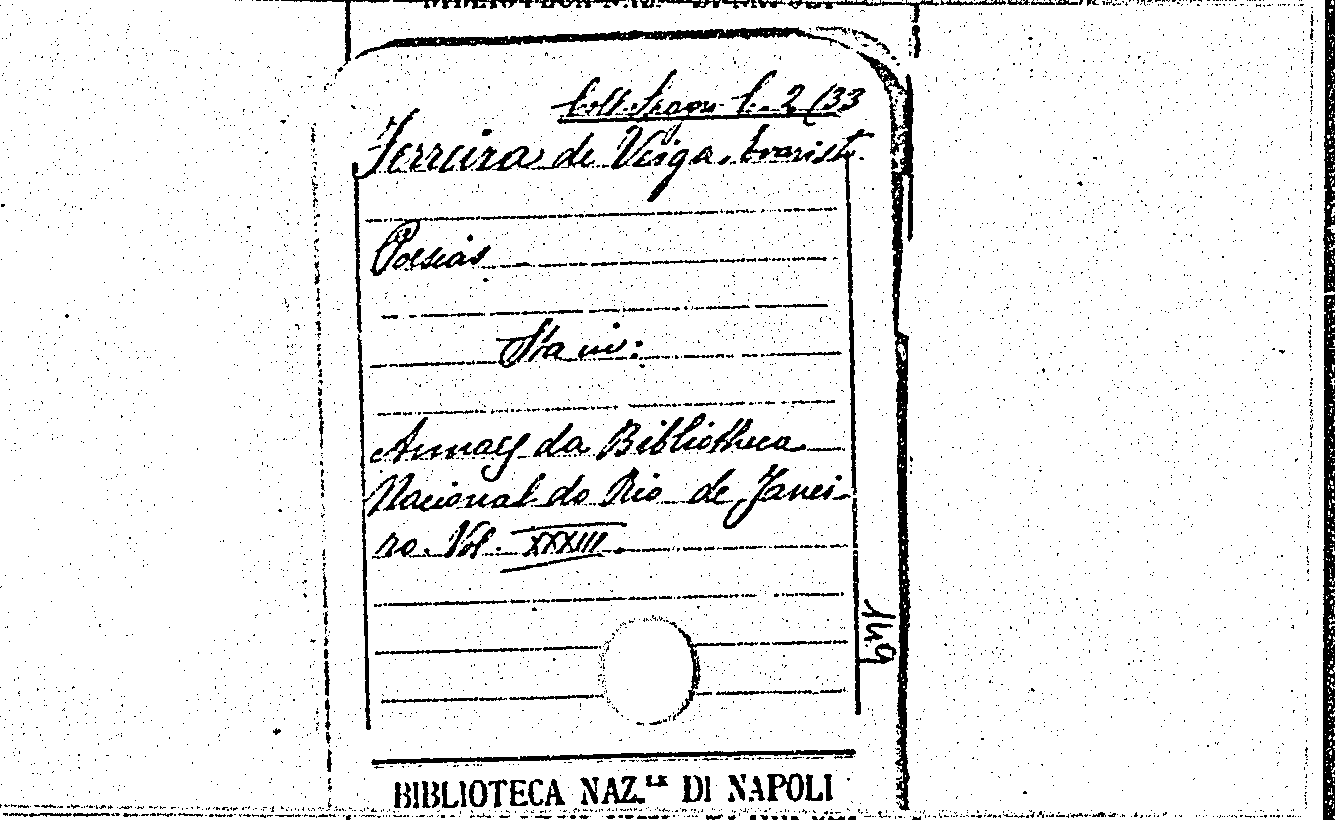 Coll. Spagn. C. 2/33
Ferreira de Veiga, Evaristo.
Poesias
Sta in:
Annaes da Bibliotheca
Nacional do Rio de Janei-
ro. Vol. XXXIII.
149
BIBLIOTECA NAZ.LE DI NAPOLI